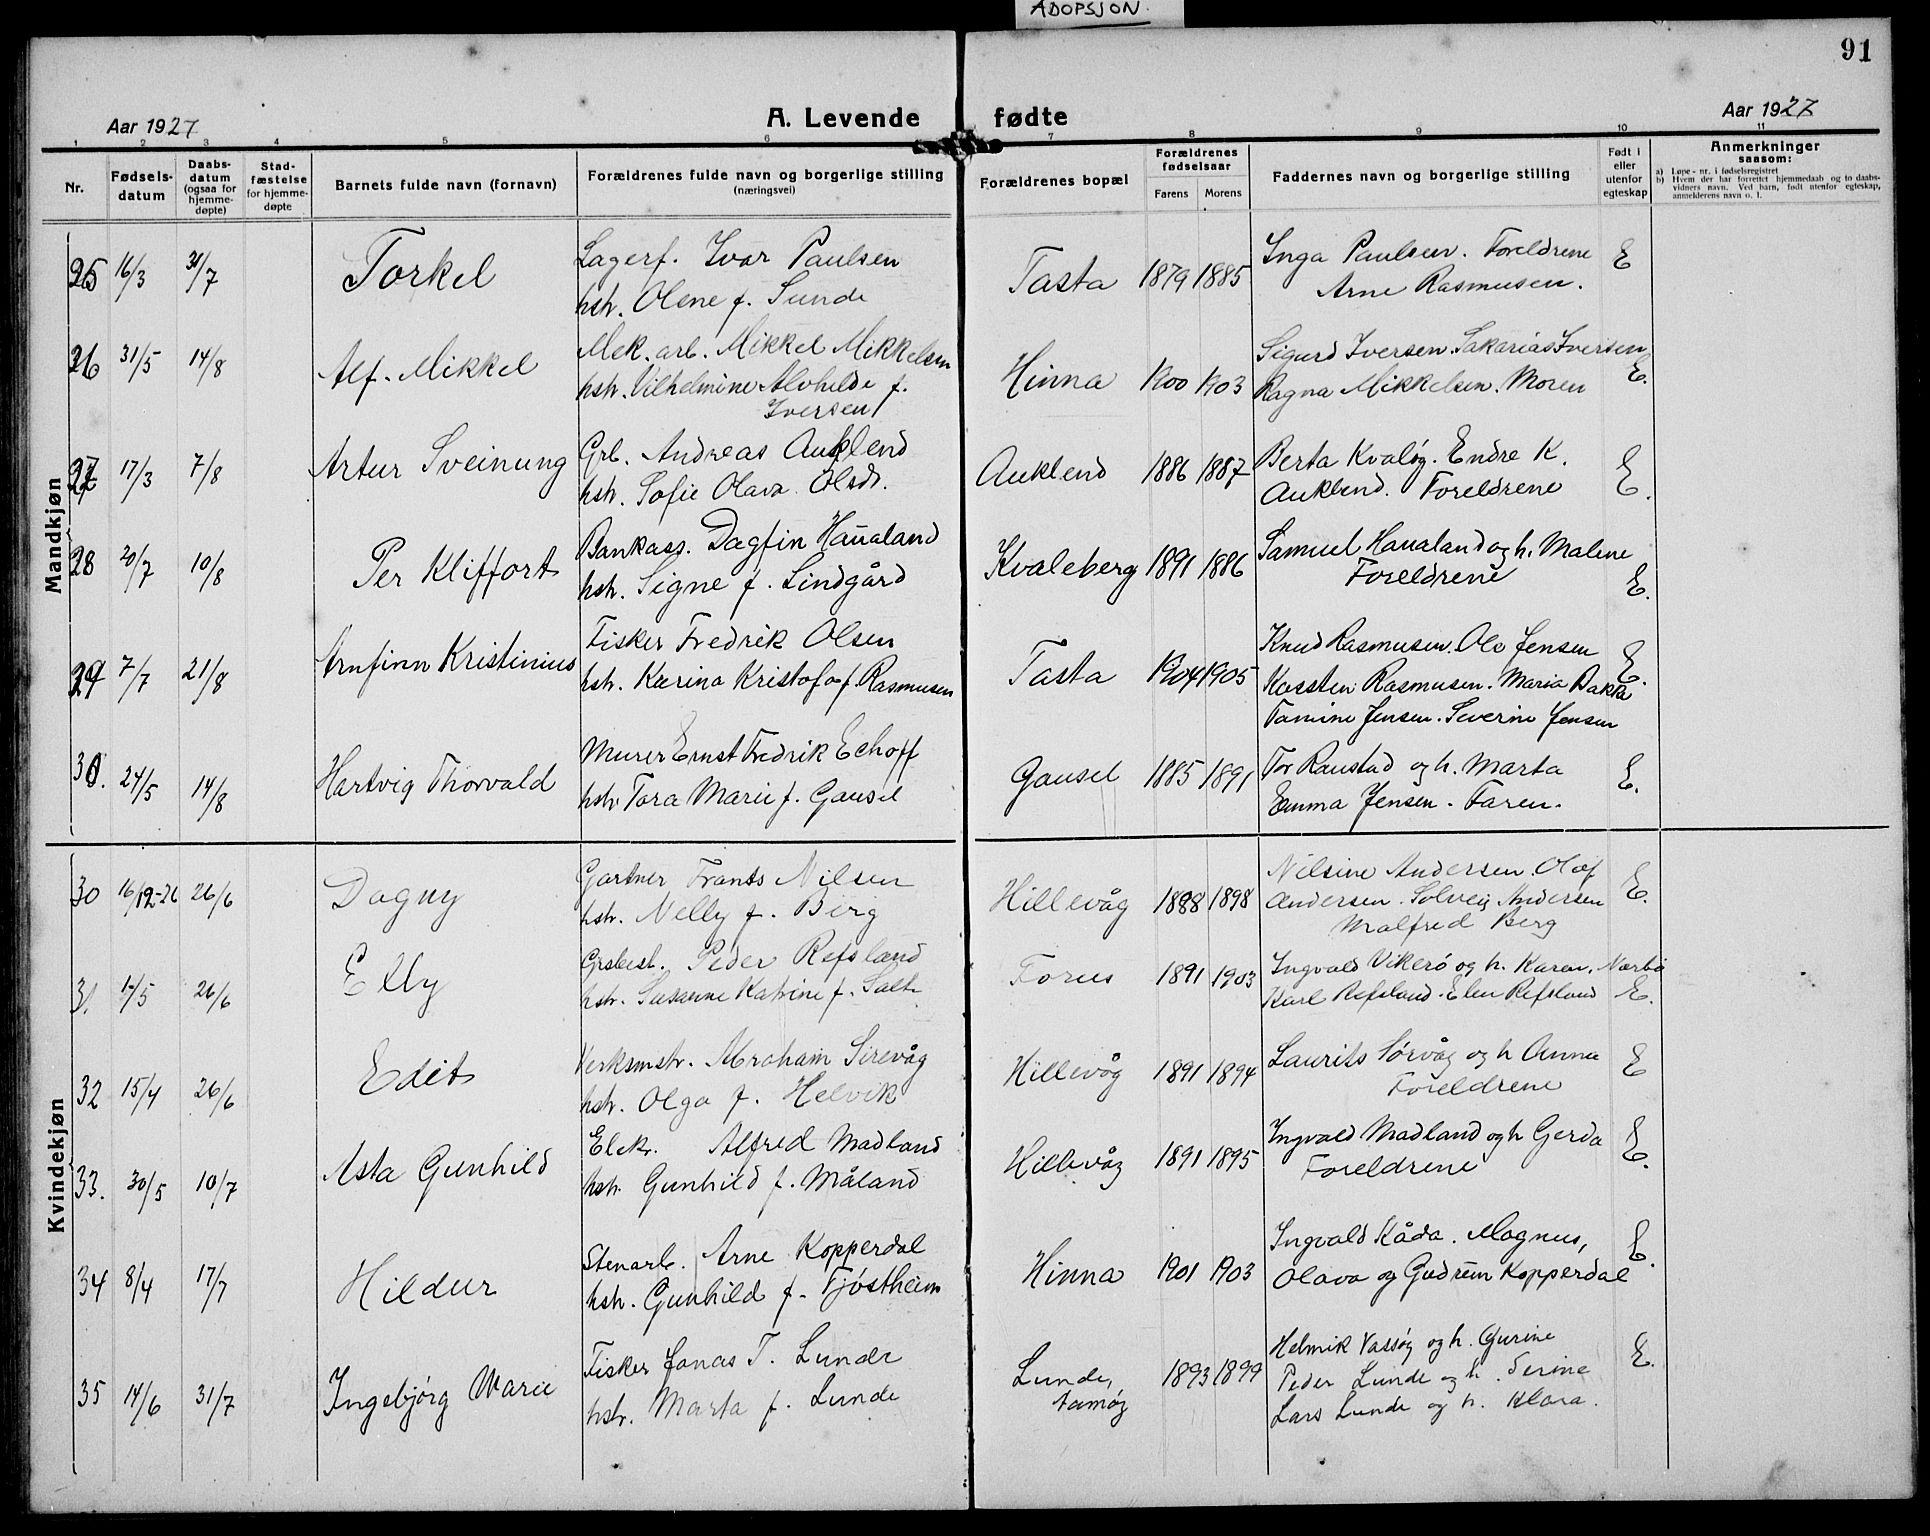 ADOPSJON.
91
Aar 1927
A. Levende fødte
Aar 1927
1 2 3 4 5 6 7 8 9 10 11
Nr.
Fødsels-
datum
Daabs-
datum
(ogsaa for
hjemme-
døpte)
Stad-
fæstelse
for hjemme-
døpte
Barnets fulde navn (fornavn)
Forældrenes fulde navn og borgerlige stilling
(næringsvei)
Forældrenes bopæl
Forældrenes
fødselsaar
Farens Morens
Faddernes navn og borgerlige stilling
Født i
eller
utenfor
egteskap
Anmerkninger
saasom:
a) Løpe-nr. i fødselsregistret
b) Hvem der har forrettet hjemmedaab og to daabs-
vidners navn. Ved barn, født utenfor egteskap,
anmelderens navn o. l.
Mandkjøn
25 16/3 31/7 Torkel
Lagerf. Ivar Paulsen
hstr. Olene f. Sunde
Tasta 1879 1885
Inga Paulsen. Foreldrene
Arne Rasmusen.
E
26 31/5 14/8 Alf. Mikkel
Mek. arb. Mikkel Mikkelsen
hstr. Vilhelmine Alvhilde f.
Iversen
Hinna 1900 1903
Sigurd Iversen. Sakarias Iversen
Ragna Mikkelsen. Moren
E.
27 17/3 7/8 Artur Sveinung
Grb. Andreas Auklend
hstr. Sofie Olava Olsdr.
Auklend 1886 1887
Berta Kvaløy. Endre K.
Auklend. Foreldrene
E.
28 20/7 10/8 Per Kliffort
Bankass. Dagfin Haualand
hstr. Signe f. Lindgård
Kvaleberg 1891 1886
Samuel Haualand og h. Malene
Foreldrene
E.
29 7/7 21/8 Arnfinn Kristinius
Fisker Fredrik Olsen
hstr. Karina Kristofa f. Rasmusen
Tasta 1904 1905
Knud Rasmusen. Ole Jensen
Karsten Rasmusen. Maria Bakka
Tamine Jensen. Severine Jensen
E.
30. 24/5 14/8 Hartvig Thorvald
Murer Ernst Fredrik Echoff
hstr Tora Marie f. Gausel
Gausel 1885 1891
Tor Raustad og h. Marta
Emma Jensen. Faren.
E.
Kvindekjøn
30 16/12-26 26/6 Dagny
Gartner Frants Nilsen
hstr. Nelly f. Berg
Hillevåg 1898 1898
Nilsine Andersen. Olaf
Andersen. Solveig Andersen
Malfred Berg
E.
31. 26/6 Elly
Grbest. Peder Refsland
hstr. Susanne Katrine f. Salte
Forus 1891 1903
Ingvald Vikerö og h. Karen. Nærbø
Karl Refsland. Elen Refsland
E.
32 15/4 26/6 Edit
Verksmstr. Abraham Sirevåg
hstr. Olga f. Helvik
Hillevåg 1891 1894
Laurits Sørvåg og h Anna
Foreldrene
E
33. 30/5 10/7 Asta Gunhild
Elek. Alfred Madland
hstr. Gunhild f. Måland
Hillevåg 1891 1895
Ingvald Madland og h Gerda
Foreldrene
E.
34 8/4 17/7 Hildur
Stenarb. Arne Kopperdal
hstr. Gunhild f. Tjøstheim
Hinna 1901 1903
Ingvald Kåda. Magnus,
Olava og Gudrun Kopperdal
E.
35 14/6 31/7 Ingebjørg Marie
Fisker Jonas T. Lunde
hstr. Marta f. Lunde
Lunde, 1893 1899
Helmik Vassøy og h. Gurine
Peder Lunde og h. Serine
Lars Lunde og h. Klara.
E.